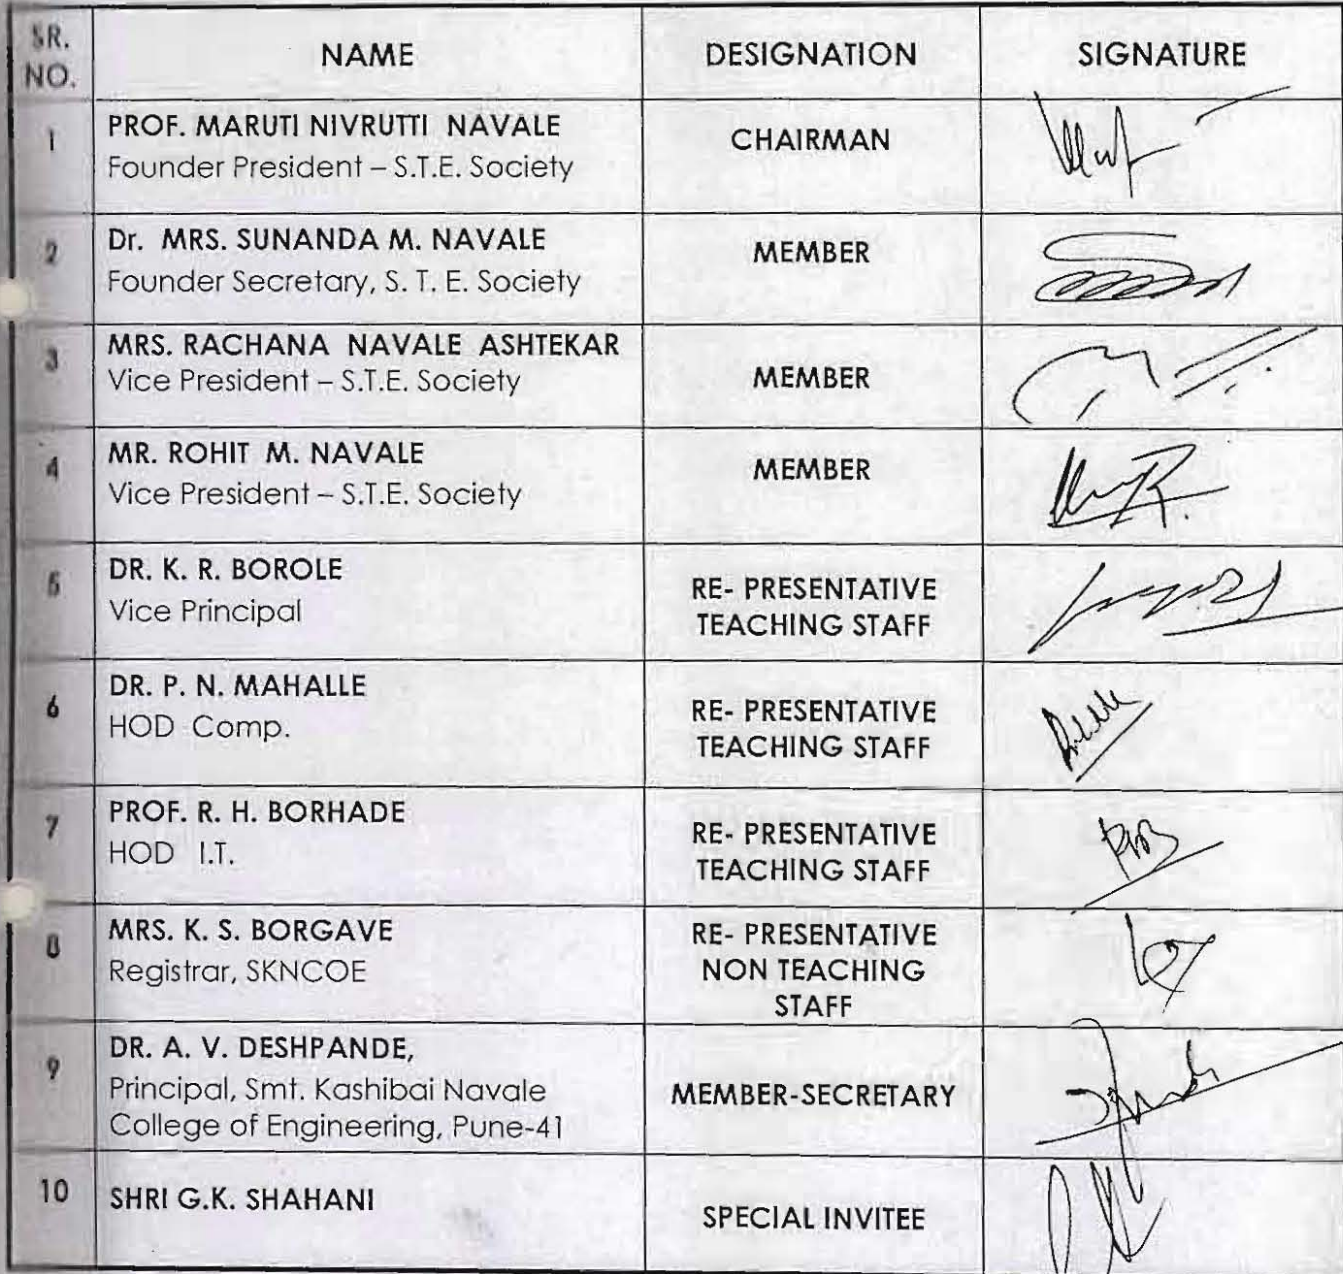 SR. NO. NAME DESIGNATION SIGNATURE
1 PROF. MARUTI NIVRUTTI NAVALE CHAIRMAN
Founder President – S.T.E. Society
2 Dr. MRS. SUNANDA M. NAVALE MEMBER
Founder Secretary, S. T. E. Society
3 MRS. RACHANA NAVALE ASHTEKAR
Vice President – S.T.E. Society MEMBER
4 MR. ROHIT M. NAVALE MEMBER
Vice President – S.T.E. Society
5 DR. K. R. BOROLE
Vice Principal
RE- PRESENTATIVE
TEACHING STAFF
6 DR. P. N. MAHALLE
HOD Comp.
RE- PRESENTATIVE
TEACHING STAFF
7 PROF. R. H. BORHADE
HOD I.T.
RE- PRESENTATIVE
TEACHING STAFF
8 MRS. K. S. BORGAVE
Registrar, SKNCOE
RE- PRESENTATIVE
NON TEACHING
STAFF
9 DR. A. V. DESHPANDE,
Principal, Smt. Kashibai Navale
College of Engineering, Pune-41
MEMBER-SECRETARY
10 SHRI G.K. SHAHANI
SPECIAL INVITEE